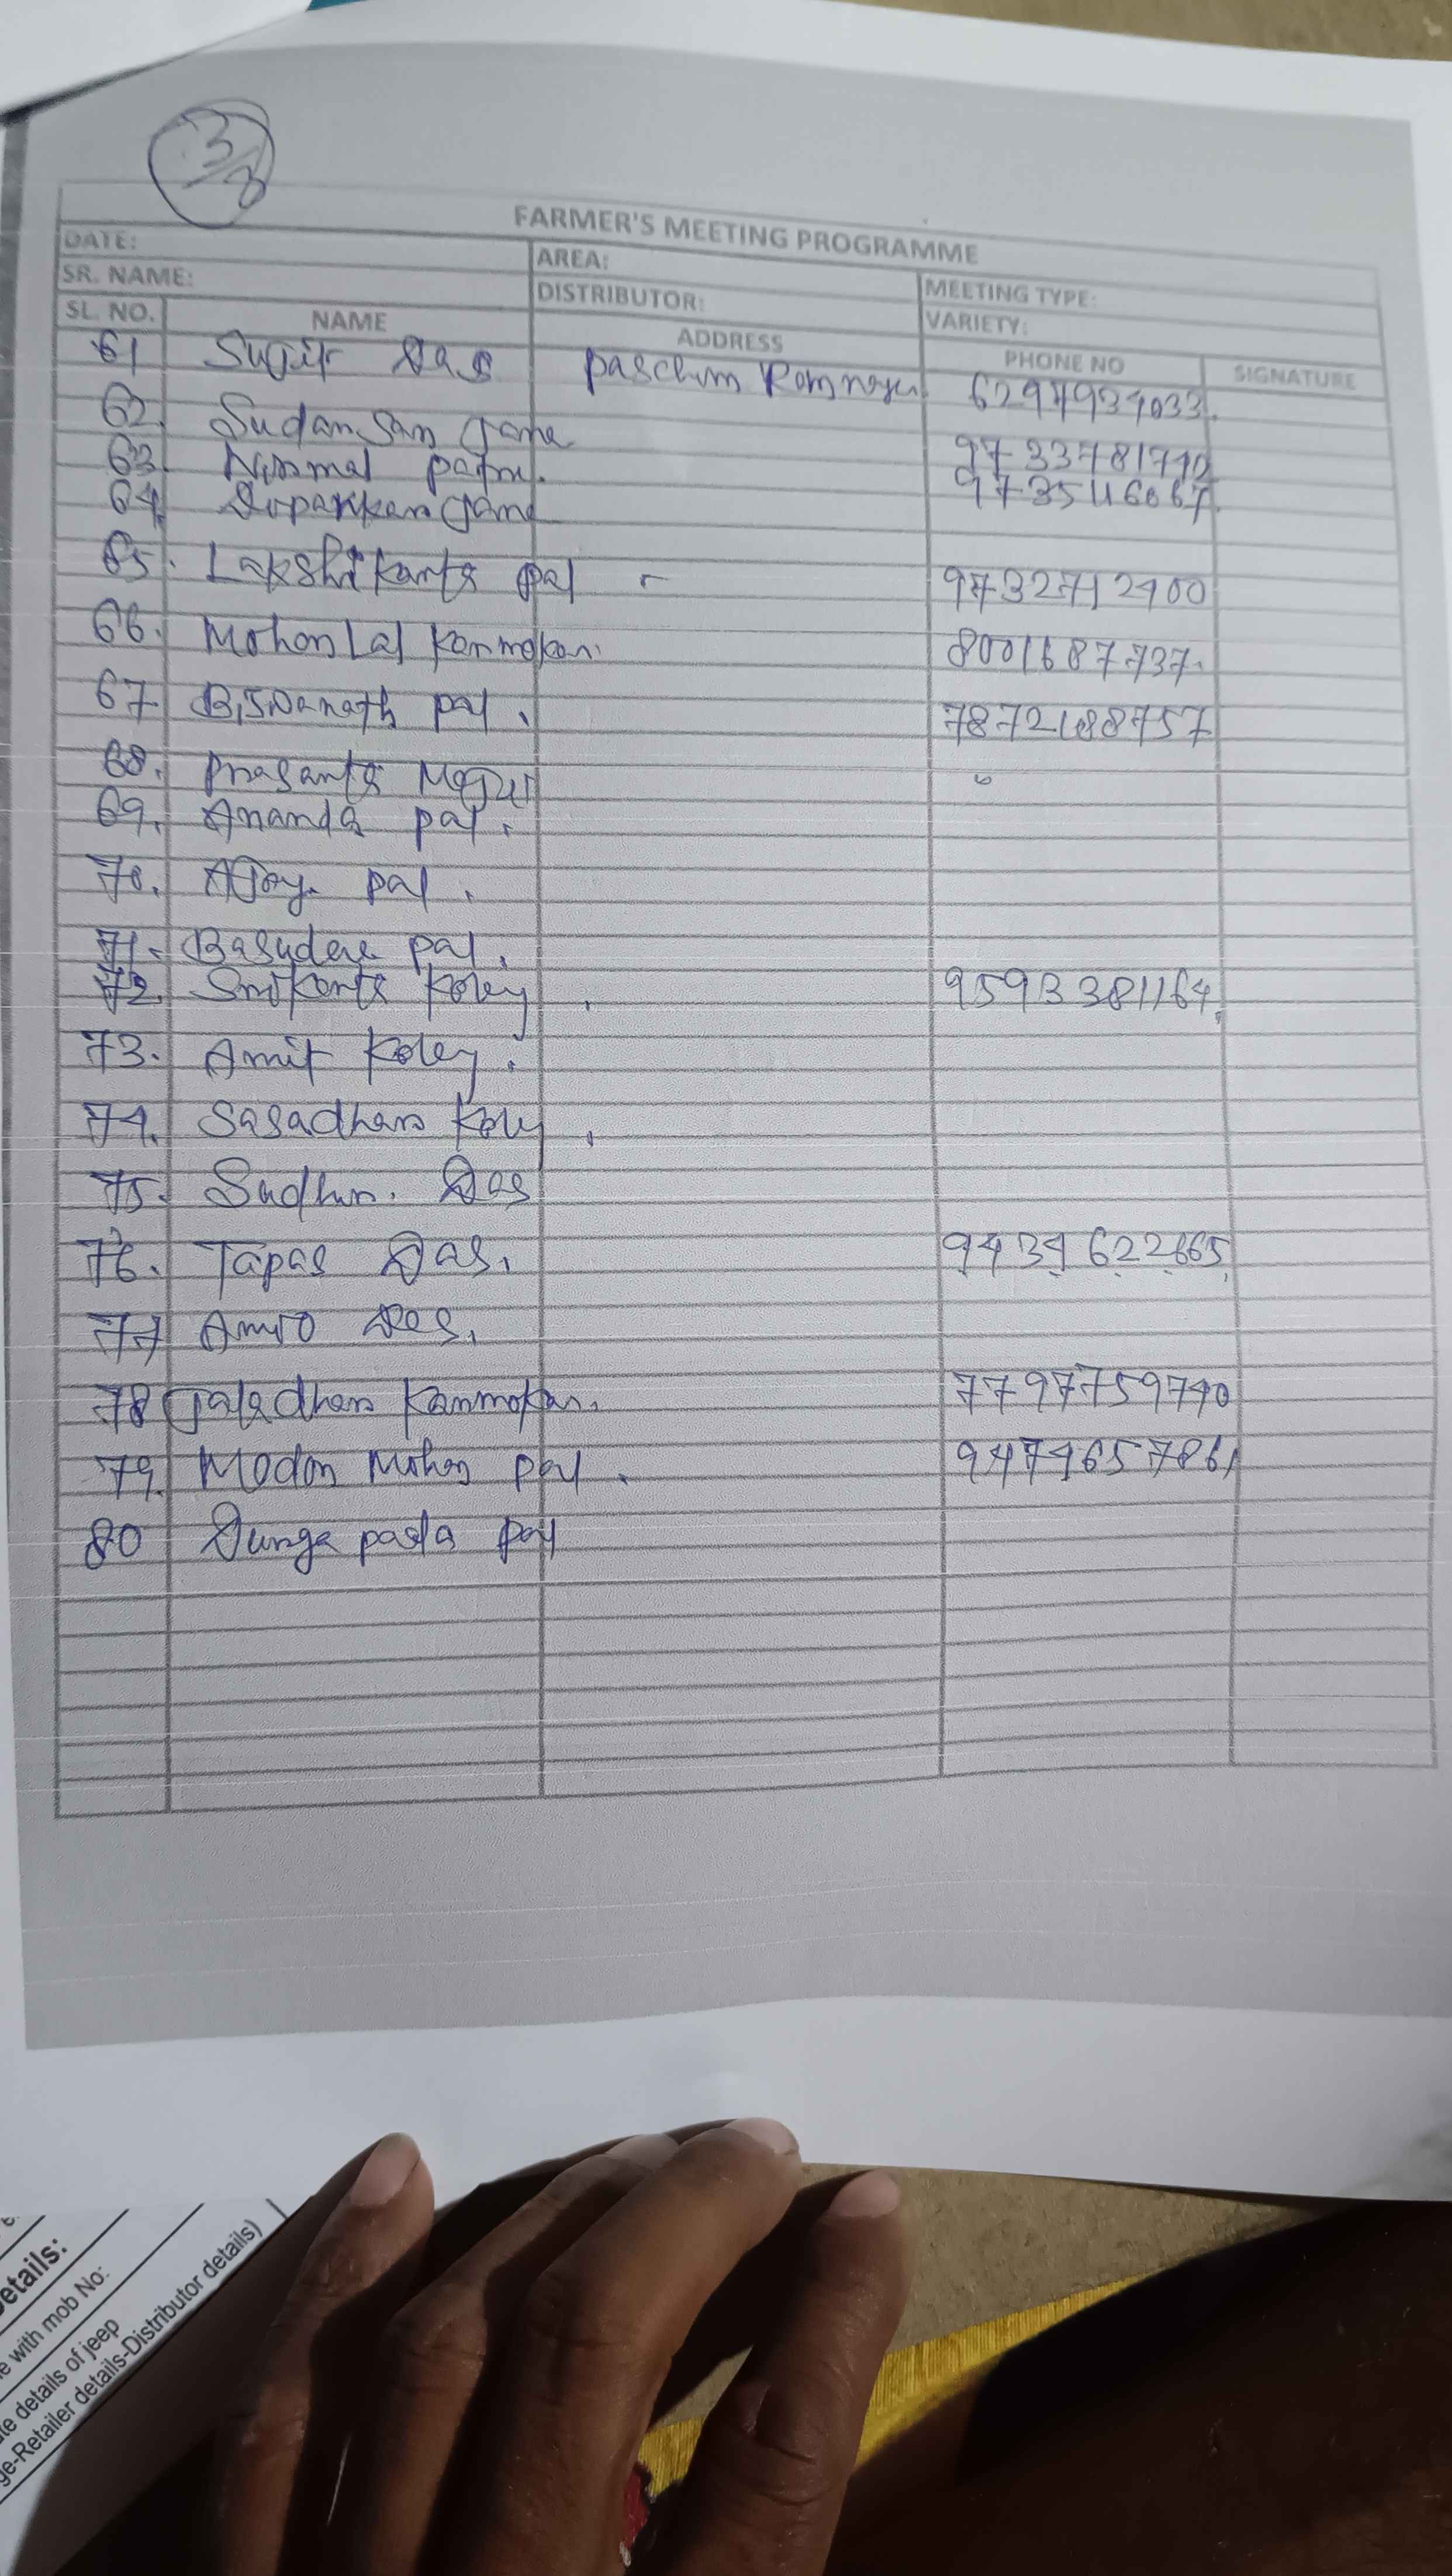 3/8
FARMER'S MEETING PROGRAMME
DATE: AREA: MEETING TYPE:
SR. NAME: DISTRIBUTOR: VARIETY:
SL. NO. NAME ADDRESS PHONE NO SIGNATURE
61 Sujit Das Paschim 6294934033
62. Sudarsan Jana 9733781740
63. Nirmal 9735116067
64.
65. Lakshikanta pal 9732712400
66. Mohon Lal Karmokar. 8001687737.
67 Biswanath pal. 7872188757
68. Prasanta
69. Ananda pal.
70. Ajoy. pal.
71. Basudev pal.
72. Srikanta Koley 9593381164
73. Amit Koley.
74. Sasadhar Koley
75. Das
76. Tapas Das. 9434622665
77 Das.
78 Jaladhar Karmokar. 7797759740
79. Modon Mohon pal. 9474657861
80 Durga pada pal
etails:
e with mob No:
te details of jeep
ge-Retailer details-Distributor details)